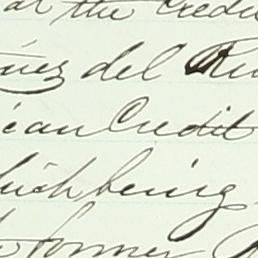 at the Credi
uez del Ri
ican Credit
hich being
former